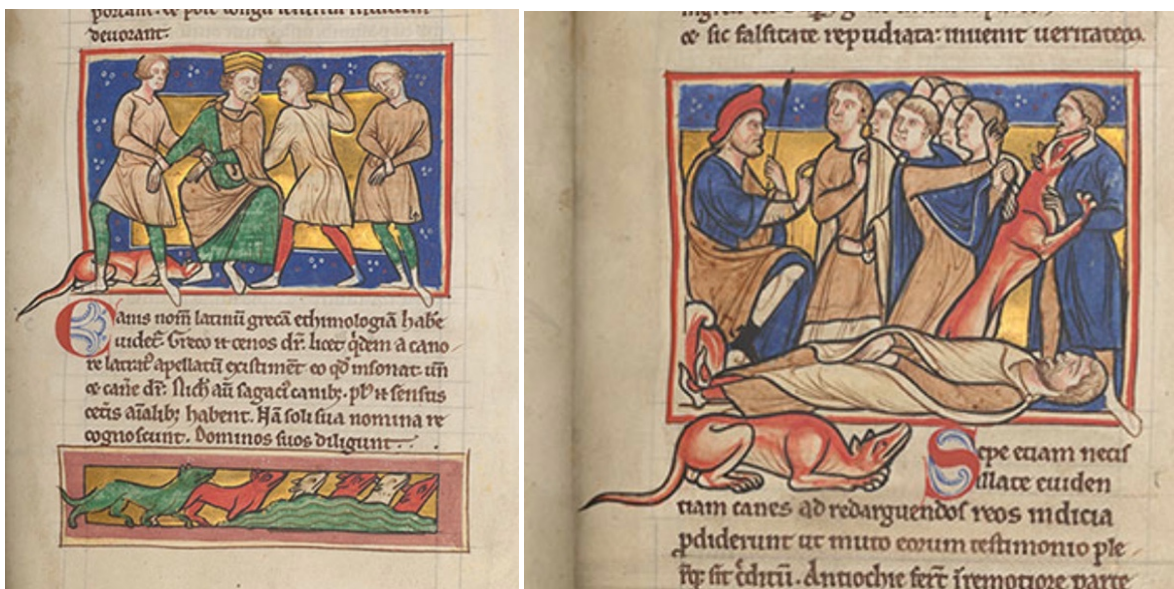 deuorant.
Canis nom̅ latinu̅ greca̅ ethimologia̅ habe
uidet̅. Greco
licet q̇dem a cano
re latrat᷒ apellatu̅ existime̅t eo qḋ insonat. un̅
⁊ cane dr̅. Nich̅ au̅ sagaci᷒ canib;. pl᷒ sensus
cet̅is ai̅alib; habent. Na̅ soli sua nomina re
cognoscunt. Dominos suos diligunt.
⁊ sic falsitate repudiata: inuenit ueritatem.
Sepe etiam necis
illate euiden
tiam canes ad redarguendos reos indicia
p̱diderunt ut muto eorum testimonio ple
sit c̊ditu̅. Antiochie fer̅t i̅remotiore parte